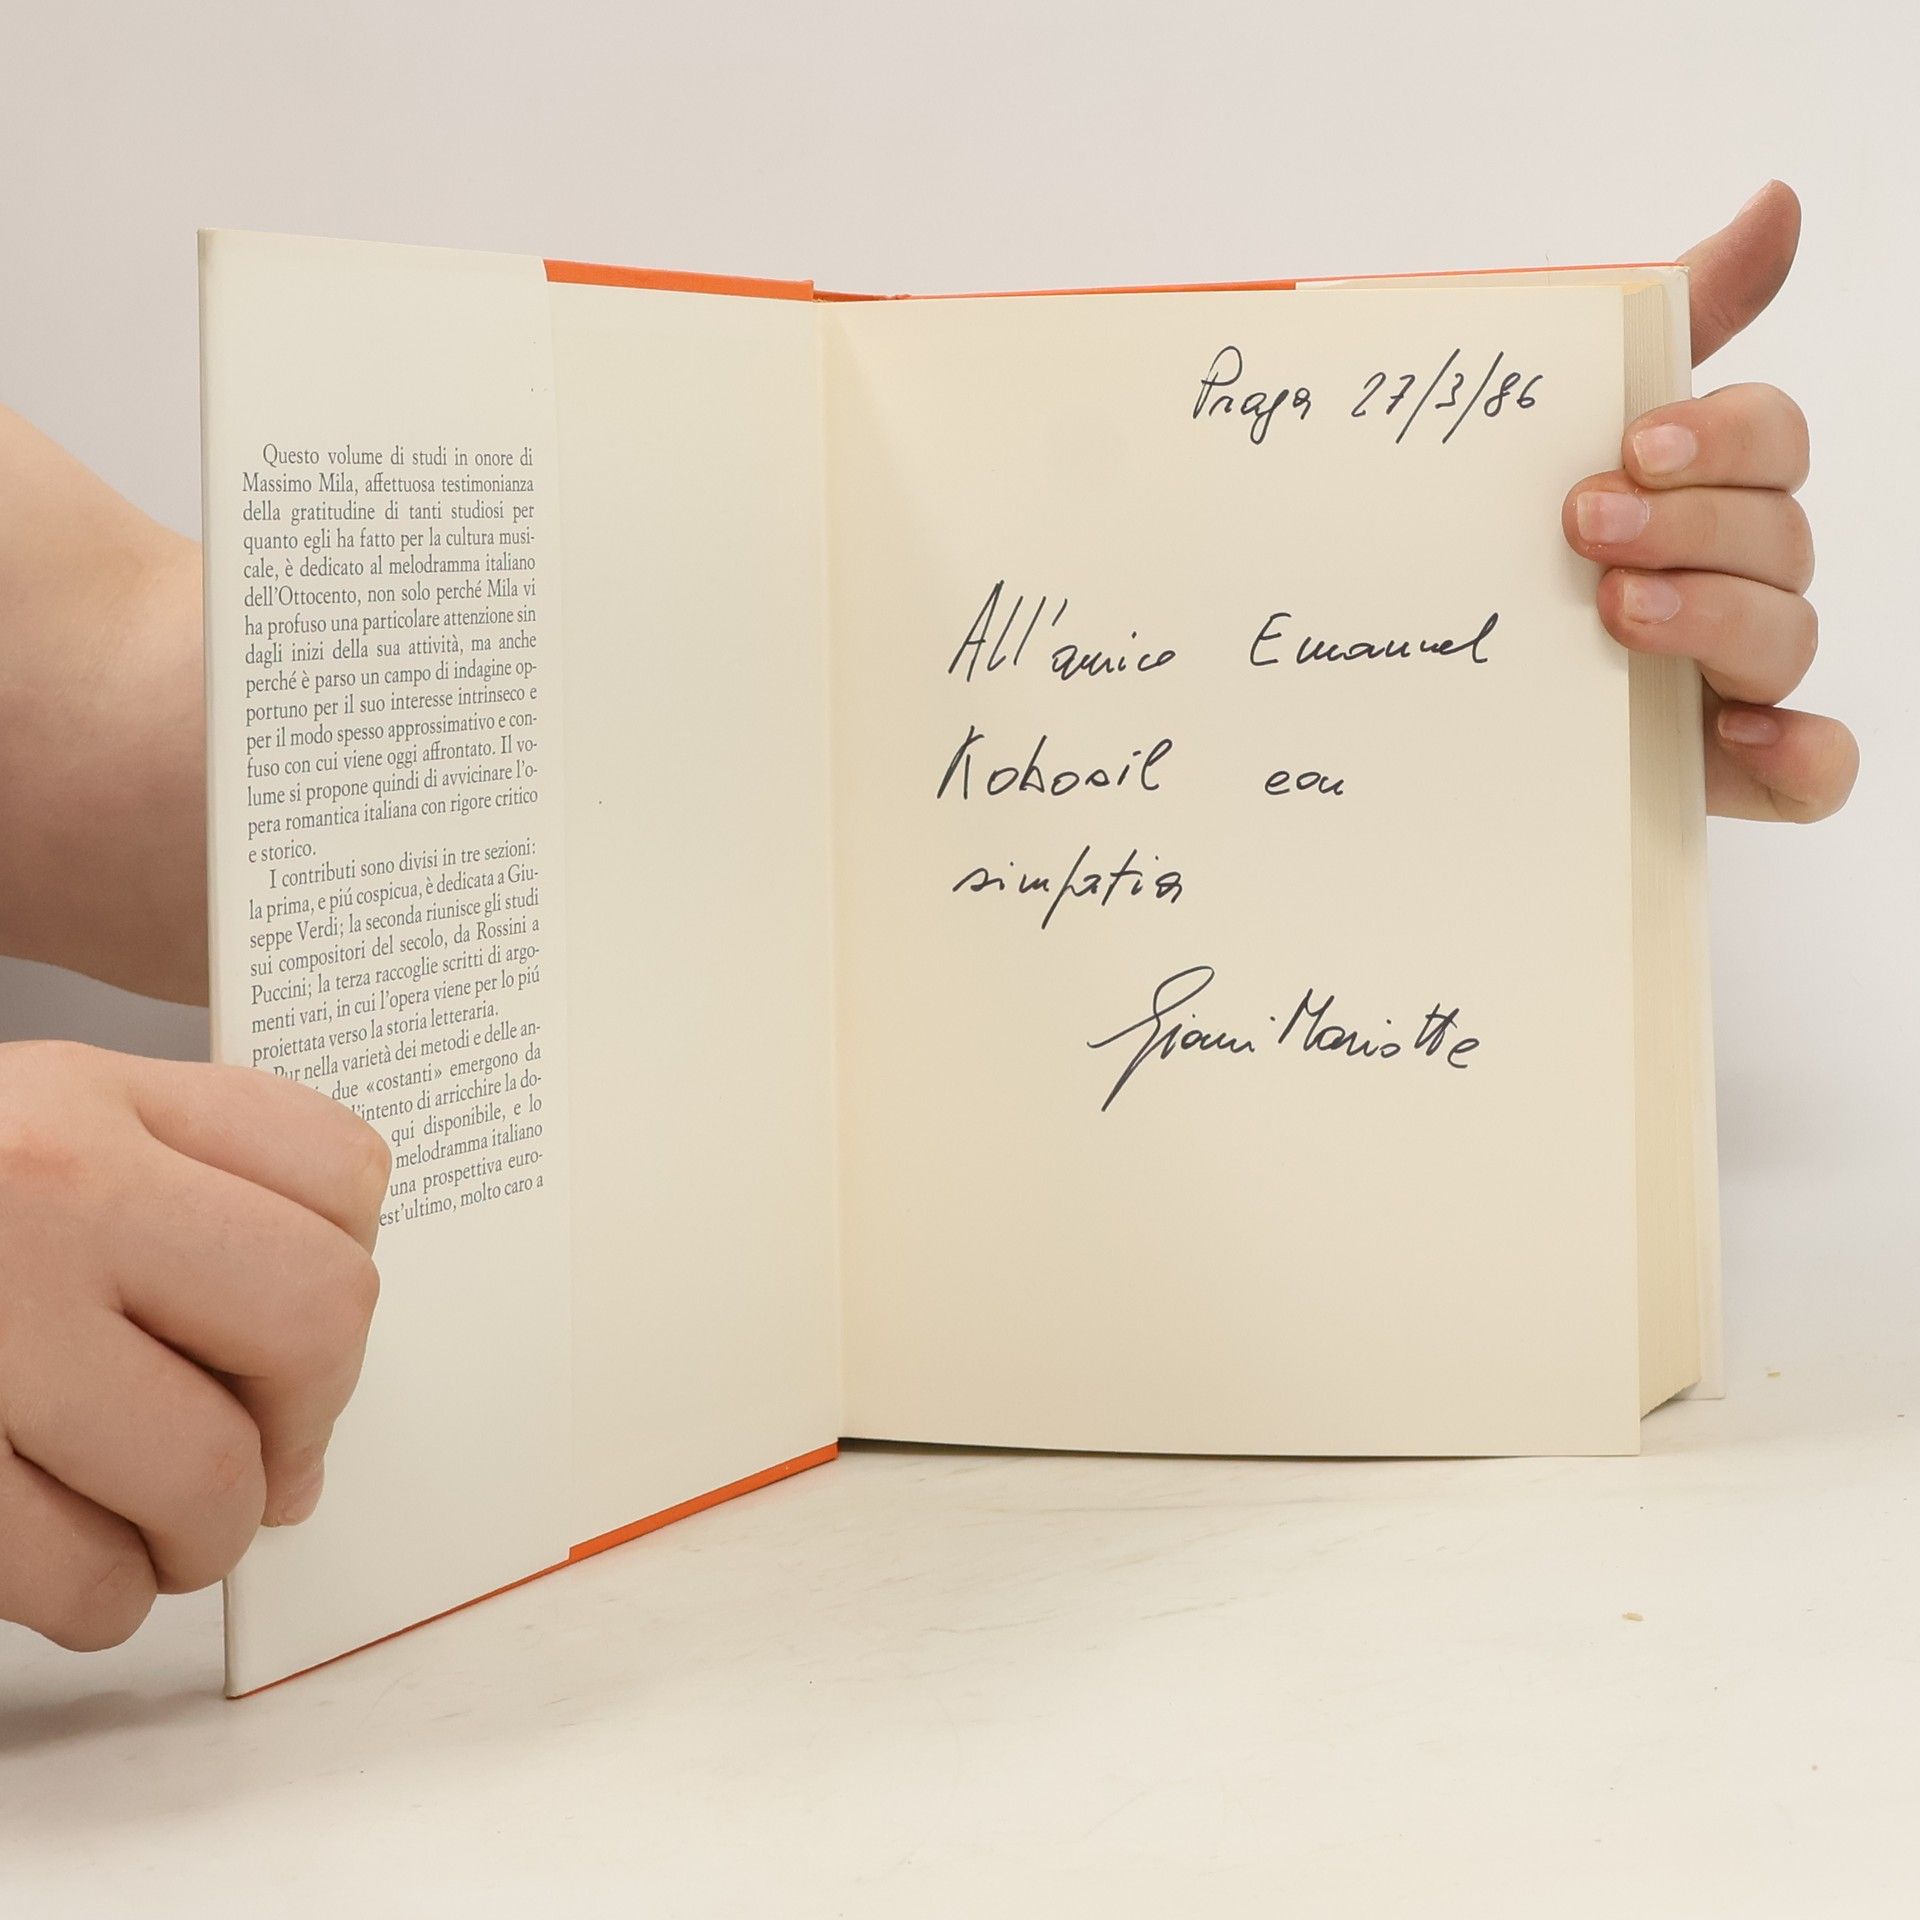 Questo volume di studi in onore di
Massimo Mila, affettuosa testimonianza
della gratitudine di tanti studiosi per
quanto egli ha fatto per la cultura musi-
cale, è dedicato al melodramma italiano
dell'Ottocento, non solo perché Mila vi
ha profuso una particolare attenzione sin
dagli inizi della sua attività, ma anche
perché è parso un campo di indagine op-
portuno per il suo interesse intrinseco e
per il modo spesso approssimativo e con-
fuso con cui viene oggi affrontato. Il vo-
lume si propone quindi di avvicinare l'o-
pera romantica italiana con rigore critico
e storico.
I contributi sono divisi in tre sezioni:
la prima, e piú cospicua, è dedicata a Giu-
seppe Verdi; la seconda riunisce gli studi
sui compositori del secolo, da Rossini a
Puccini; la terza raccoglie scritti di argo-
menti vari, in cui l'opera viene per lo piú
proiettata verso la storia letteraria.
Pur nella varietà dei metodi e delle an-
due «costanti» emergono da
l'intento di arricchire la do-
qui disponibile, e lo
melodramma italiano
una prospettiva euro-
est'ultimo, molto caro a
Praga 27/3/86
All'amico Emanuel
Kobosil con
simpatia
Gianni Mariotte